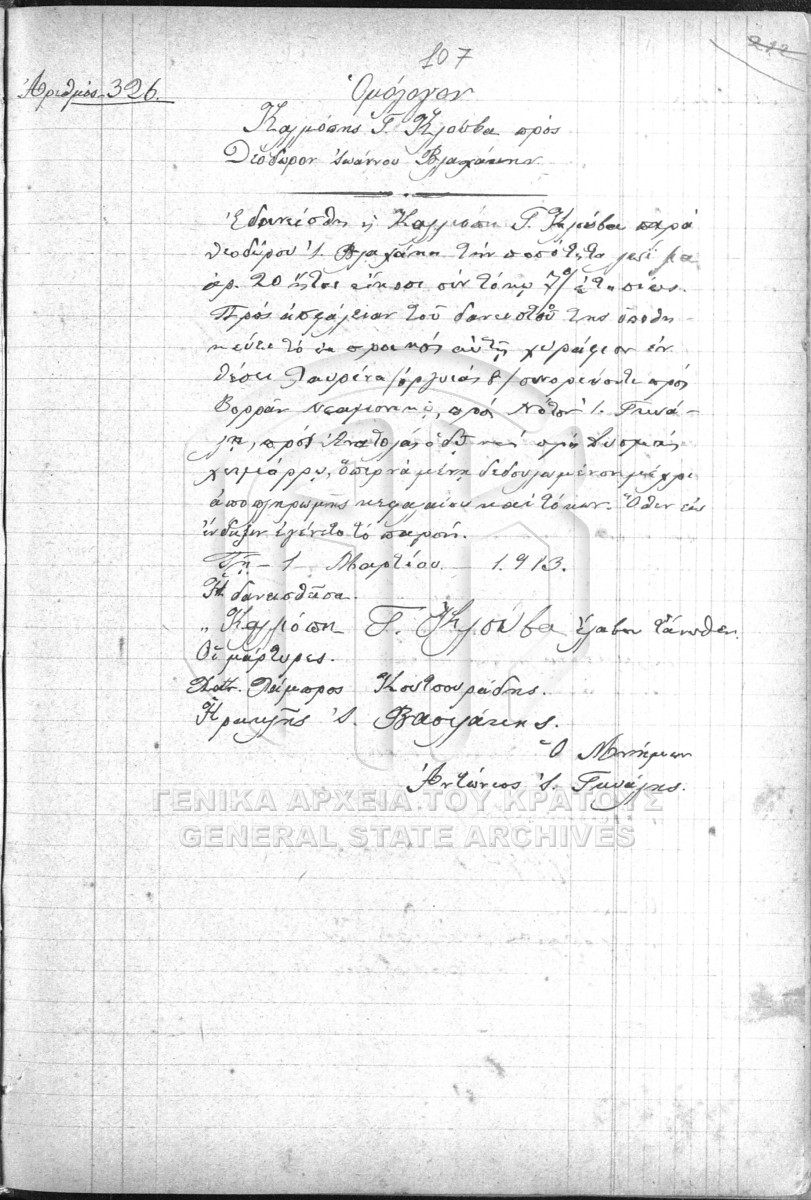 107
212
Ἀριθμὸς 326.
Ὁμόλογον
Καλλιόπης Γ. Κλούβα πρὸς
Θεόδωρον Ἰωάννου Βλαχάκην
Ἐδανείσθη ἡ Καλλιόπη Γ. Κλούβα παρὰ
Θεοδώρου Ἰ. Βλαχάκη τὴν ποσότητα
ἀρ. 20 ἤτοι εἴκοσι σὺν τόκῳ 7% ἐτησίως.
Πρὸς ἀσφάλειαν τοῦ δανειστοῦ της ὑποθη
κεύει τὸ ἐκ προικὸς αὐτῆς χωράφιον ἐν
θέσει Λαυρένα /ὀργυιάς 8/ συνορεύοντα πρὸς
Βορρᾶν, πρὸς Νότον Ἰ. Γκυά-
λη, πρὸς Ἀνατολὰς ὁδῷ καὶ πρὸς Δυσμὰς
χειμάρρῳ, ὅπερ νὰ μένῃ δεδουλωμένον μέχρι
ἀποπληρωμῆς κεφαλαίου καὶ τόκων. Ὅθεν εἰς
ἔνδειξιν ἐγένετο τὸ παρόν.
Τῇ - 1 Μαρτίου 1913.
Ἡ δανεισθεῖσα
" Καλλιόπη Γ. Κλούβα ἔλαβον τἄνωθεν
Οἱ μάρτυρες.
Λάμπρος Κουτσουράδης.
Ἡρακλῆς Ἰ. Βασιλάκης.
Ὁ Μνήμων
Ἀντώνιος Ἰ. Γκυάλης.
ΓΕΝΙΚΑ ΑΡΧΕΙΑ ΤΟΥ ΚΡΑΤΟΥΣ
GENERAL STATE ARCHIVES